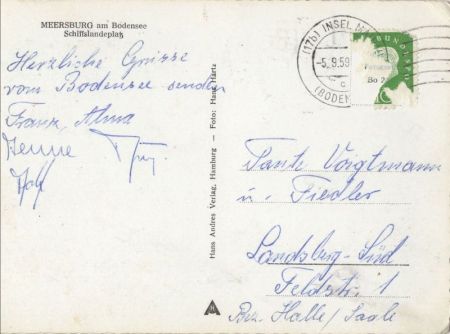 MEERSBURG am Bodensee
Schiffslandeplatz
Herzliche Grüsse
vom Bodensee senden
Franz, Alma
Hanns Andres Verlag, Hamburg — Foto: Hans Hartz
(17b) INSEL
-5.9.59
c
(BODEN
BUNDES
Tante Voigtmann
u. Fiedler
Landsberg-Süd
Feldstr. 1
Bez. Halle/Saale